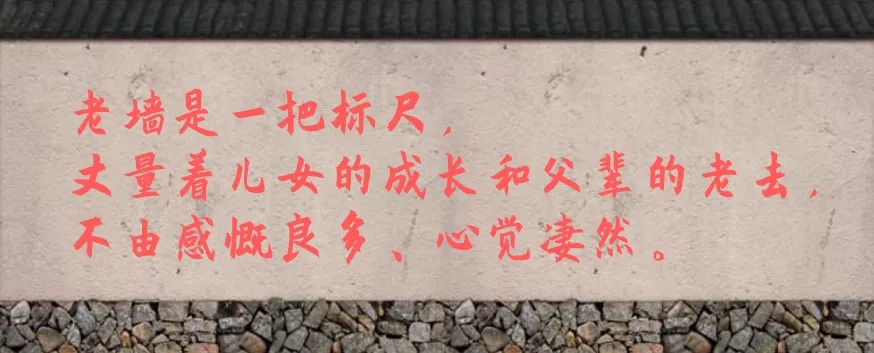 老墙是一把标尺，
丈量着儿女的成长和父辈的老去，
不由感慨良多、心觉凄然。